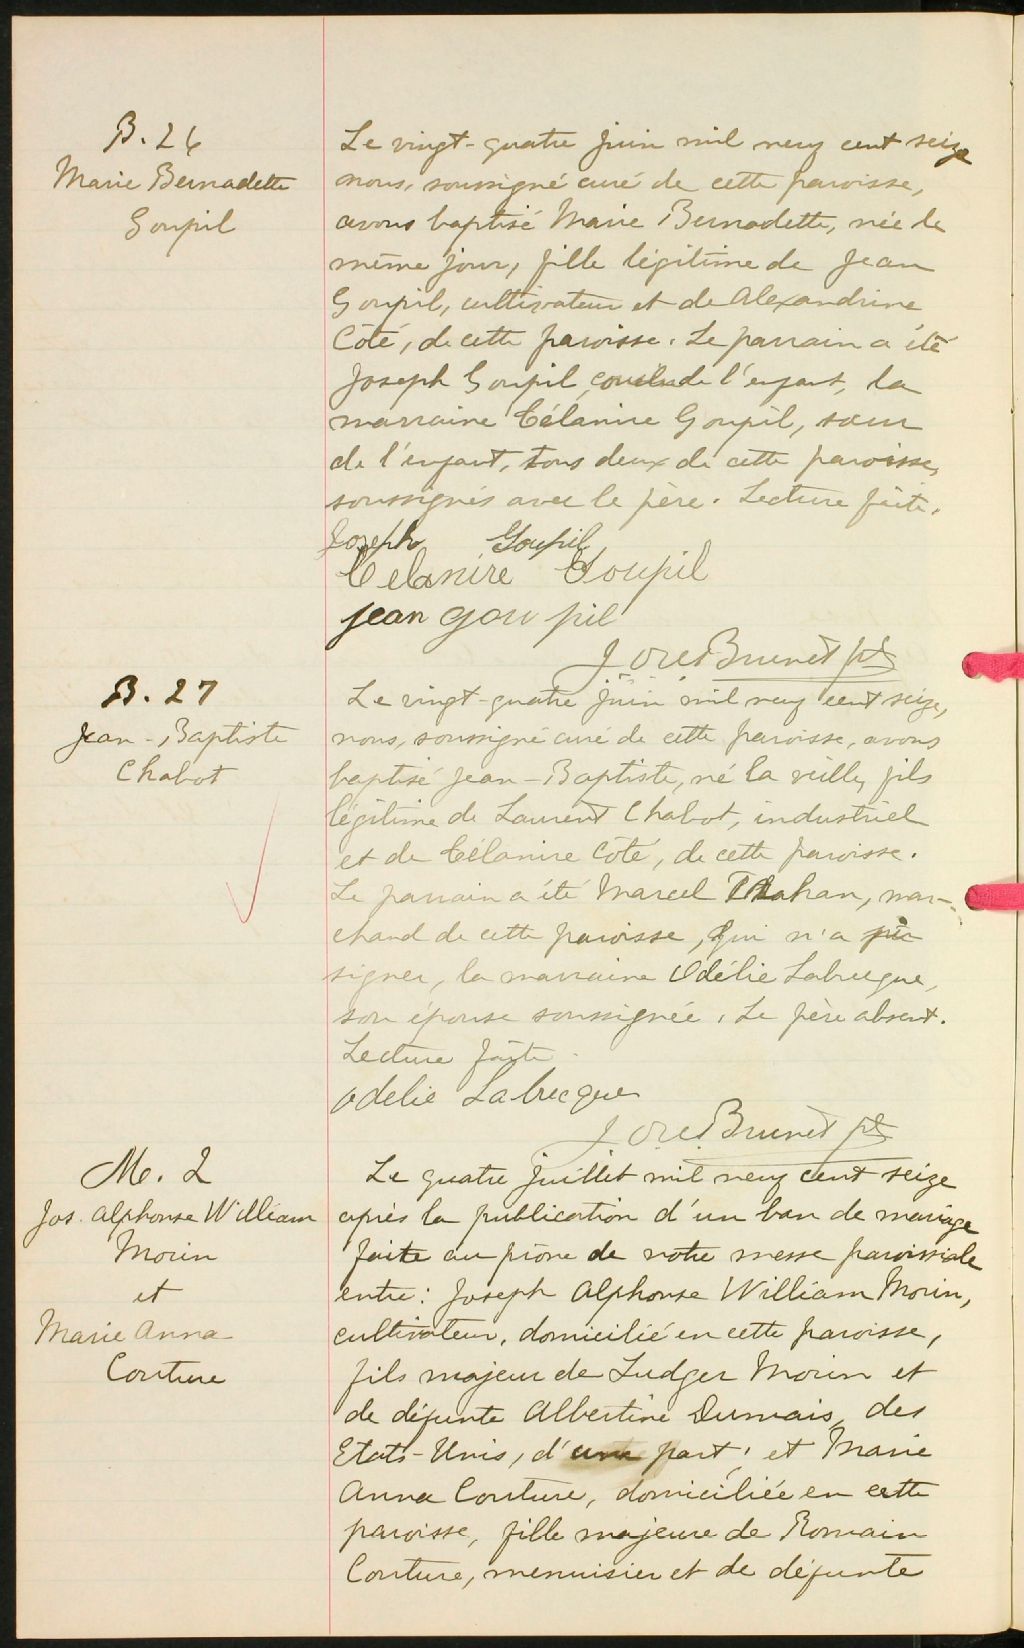 B. 26
Marie Bernadette
Goupil
Le vingt-quatre juin mil neuf cent seize
nous, soussigné curé de cette paroisse,
avons baptisé Marie Bernadette, née le
même jour, fille légitime de Jean
Goupil, cultivateur et de Alexandrine
Côté, de cette paroisse. Le parrain a été
Joseph Goupil, cousin de l'enfant, la
marraine Célanire Goupil, soeur
de l'enfant, tous deux de cette paroisse,
soussignés avec le père. Lecture faite.
Joseph Goupil
Celanire Goupil
jean goupil
J Ores Brunet ptr
B. 27
Jean-Baptiste
Chabot
Le vingt-quatre juin mil neuf cent seize,
nous, soussigné curé de cette paroisse, avons
baptisé Jean-Baptiste, né la veille, fils
légitime de Laurent Chabot, industriel
et de Célanire Côté, de cette paroisse.
Le parrain a été Marcel Trahan, mar-
chand de cette paroisse, qui n'a pu
signer, la marraine Odélie Labrecque,
son épouse soussignée. Le père absent.
Lecture faite.
Odelie Labrecque
J Ores Brunet ptr
M. 2
Jos. Alphonse William
Morin
et
Marie Anna
Couture
Le quatre juillet mil neuf cent seize
après la publication d'un ban de mariage
faite au prône de notre messe paroissiale
entre: Joseph Alphonse William Morin,
cultivateur, domicilié en cette paroisse,
fils majeur de Ludger Morin et
de défunte Albertine Dumais, des
Etats-Unis, d'une part; et Marie
Anna Couture, domiciliée en cette
paroisse, fille majeure de Romain
Couture, menuisier et de défunte